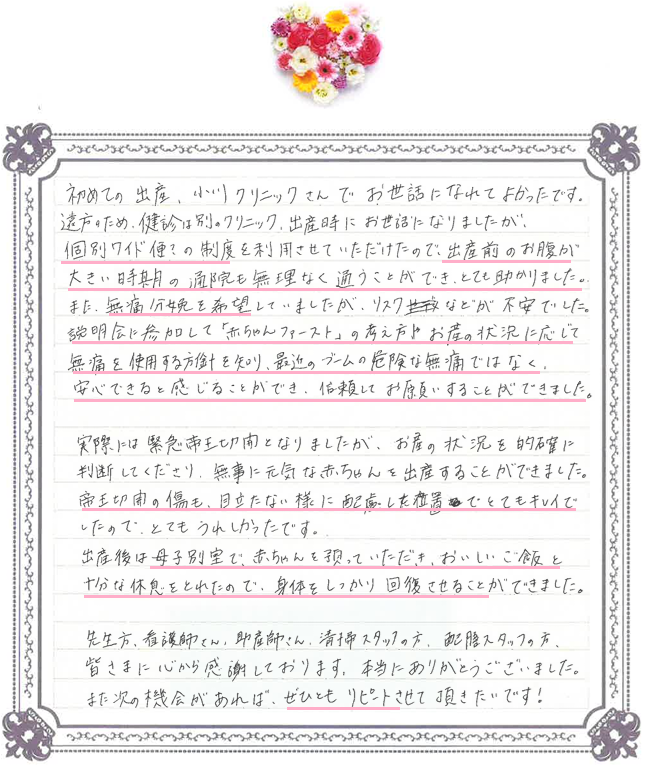 初めての出産、小川クリニックさんでお世話になれてよかったです。
遠方のため、健診は別のクリニック、出産時にお世話になりましたが、
個別ワイド便?の制度を利用させていただけたので、出産前のお腹が
大きい時期の通院も無理なく通うことができ、とても助かりました。
また、無痛分娩を希望していましたが、リスクなどが不安でした。
説明会に参加して「赤ちゃんファースト」の考え方やお産の状況に応じて
無痛を使用する方針を知り、最近のブームの危険な無痛ではなく、
安心できると感じることができ、信頼してお願いすることができました。
実際には緊急帝王切開となりましたが、お産の状況を的確に
判断してくださり、無事に元気な赤ちゃんを出産することができました。
帝王切開の傷も、目立たない様に配慮した位置でとてもキレイで
したので、とてもうれしかったです。
出産後は母子別室で、赤ちゃんを預っていただき、おいしいご飯と
十分な休息をとれたので、身体をしっかり回復させることができました。
先生方、看護師さん、助産師さん、清掃スタッフの方、配膳スタッフの方、
皆さまに心から感謝しております。本当にありがとうございました。
また次の機会があれば、ぜひともリピートさせて頂きたいです!